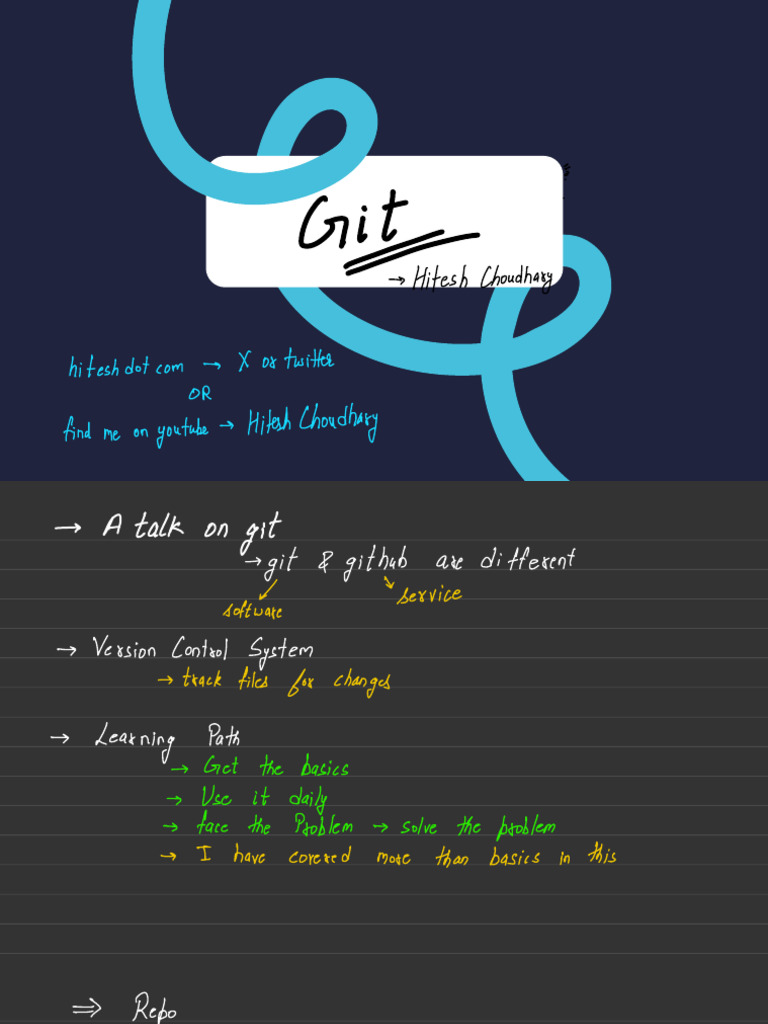 Git
→ Hitesh Choudhary
hiteshdotcom → X or twitter
OR
find me on youtube → Hitesh Choudhary
→ A talk on git
→ git & github are different
software
service
→ Version Control System
→ track files for changes
→ Learning Path
→ Get the basics
→ Use it daily
→ face the Problem → solve the problem
→ I have covered more than basics in this
⇒ Repo